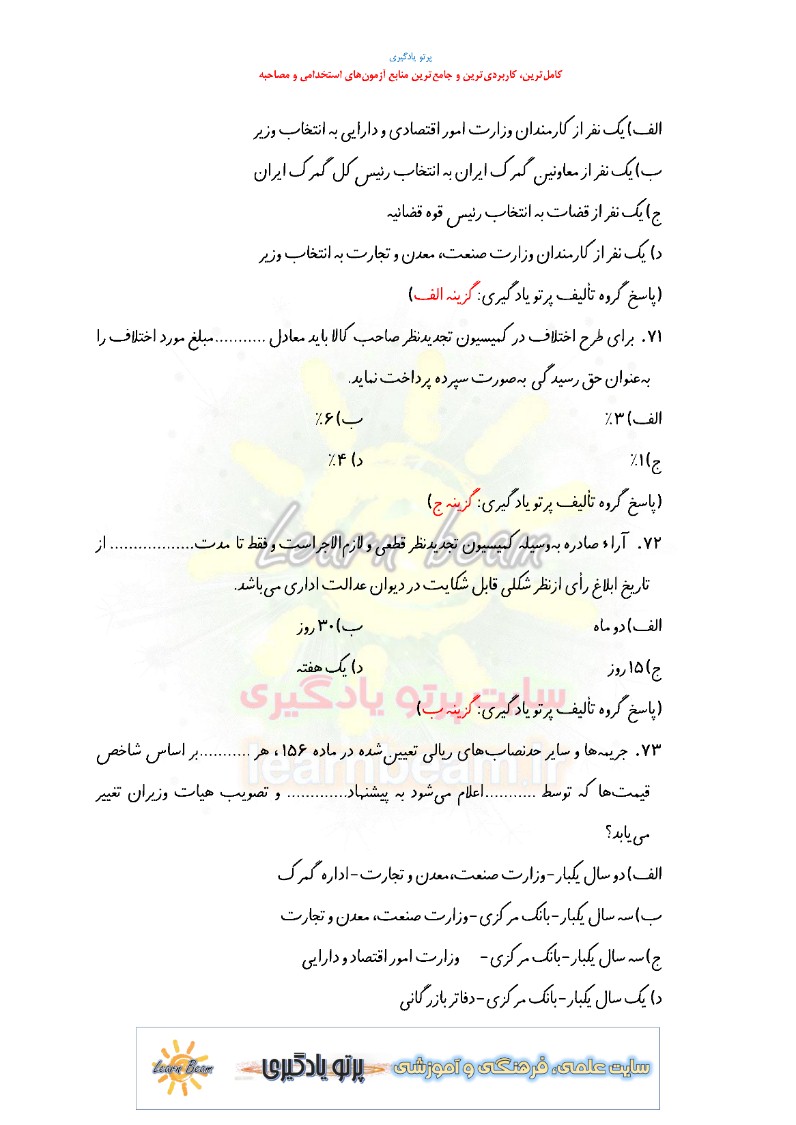 پرتو یادگیری
کامل‌ترین، کاربردی‌ترین و جامع‌ترین منابع آزمون‌های استخدامی و مصاحبه
الف) یک نفر از کارمندان وزارت امور اقتصادی و دارایی به انتخاب وزیر
ب) یک نفر از معاونین گمرک ایران به انتخاب رئیس کل گمرک ایران
ج) یک نفر از قضات به انتخاب رئیس قوه قضائیه
د) یک نفر از کارمندان وزارت صنعت، معدن و تجارت به انتخاب وزیر
(پاسخ گروه تألیف پرتو یادگیری: گزینه الف)
۷۱. برای طرح اختلاف در کمیسیون تجدیدنظر صاحب کالا باید معادل ...........مبلغ مورد اختلاف را
به‌عنوان حق رسیدگی به‌صورت سپرده پرداخت نماید.
الف) ۳٪ ب) ۶٪
ج) ۱٪ د) ۴٪
(پاسخ گروه تألیف پرتو یادگیری: گزینه ج)
۷۲. آراء صادره به‌وسیله کمیسیون تجدیدنظر قطعی و لازم‌الاجراست و فقط تا مدت.................. از
تاریخ ابلاغ رأی ازنظر شکلی قابل شکایت در دیوان عدالت اداری می‌باشد.
الف) دو ماه ب) ۳۰ روز
ج) ۱۵ روز د) یک هفته
(پاسخ گروه تألیف پرتو یادگیری: گزینه ب)
۷۳. جریمه‌ها و سایر حدنصاب‌های ریالی تعیین‌شده در ماده ۱۵۶، هر ...........بر اساس شاخص
قیمت‌ها که توسط ...........اعلام می‌شود به پیشنهاد............. و تصویب هیات وزیران تغییر
می‌یابد؟
الف) دو سال یکبار-وزارت صنعت،معدن و تجارت-اداره گمرک
ب) سه سال یکبار-بانک مرکزی-وزارت صنعت، معدن و تجارت
ج) سه سال یکبار-بانک مرکزی- وزارت امور اقتصاد و دارایی
د) یک سال یکبار-بانک مرکزی-دفاتر بازرگانی
Learn beam
سایت پرتو یادگیری
learnbeam.ir
سایت علمی، فرهنگی و آموزشی پرتو یادگیری Learn Beam